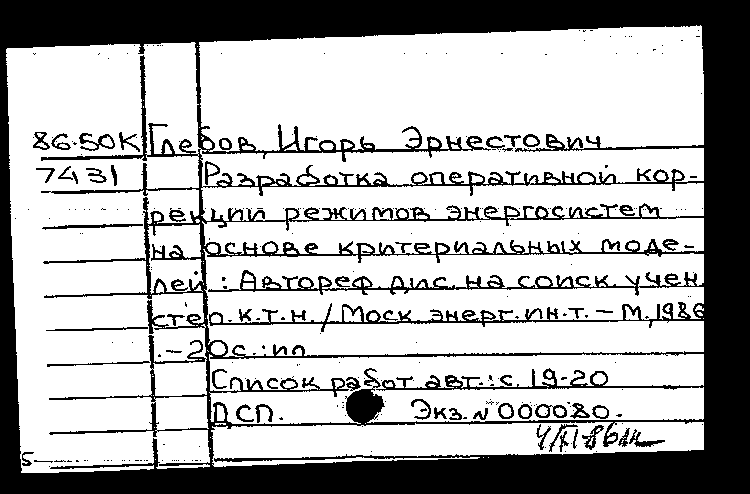 86-50К Глебов, Игорь Эрнестович
7431 Разработка оперативной кор-
рекции режимов энергосистем
на основе критериальных моде-
лей : Автореф. дис. на соиск. учен.
степ. к.т.н. / Моск. энерг. ин-т. – М., 1986
. – 20с. : ил
Список работ авт.: с. 19-20
ДСП. Экз. № 000080.
4/XI-86